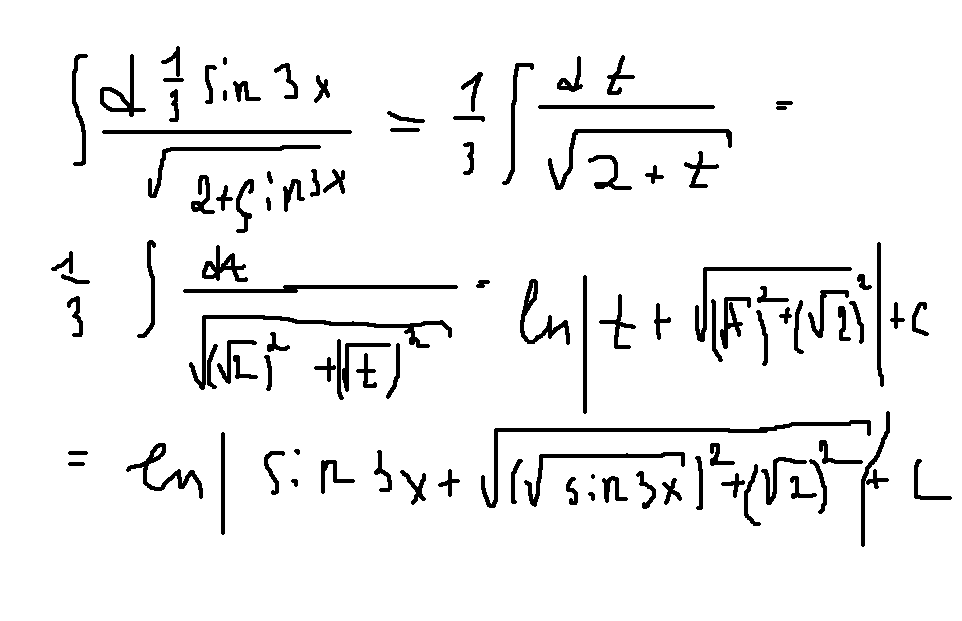 ∫ d 1/3 sin 3x / √(2+sin3x) = 1/3 ∫ dt / √(2+t) =
1/3 ∫ dt / √((√2)² + (√t)²) = ln | t + √((√t)² + (√2)²) | + C
= ln | sin 3x + √((√sin 3x)² + (√2)²) | + C